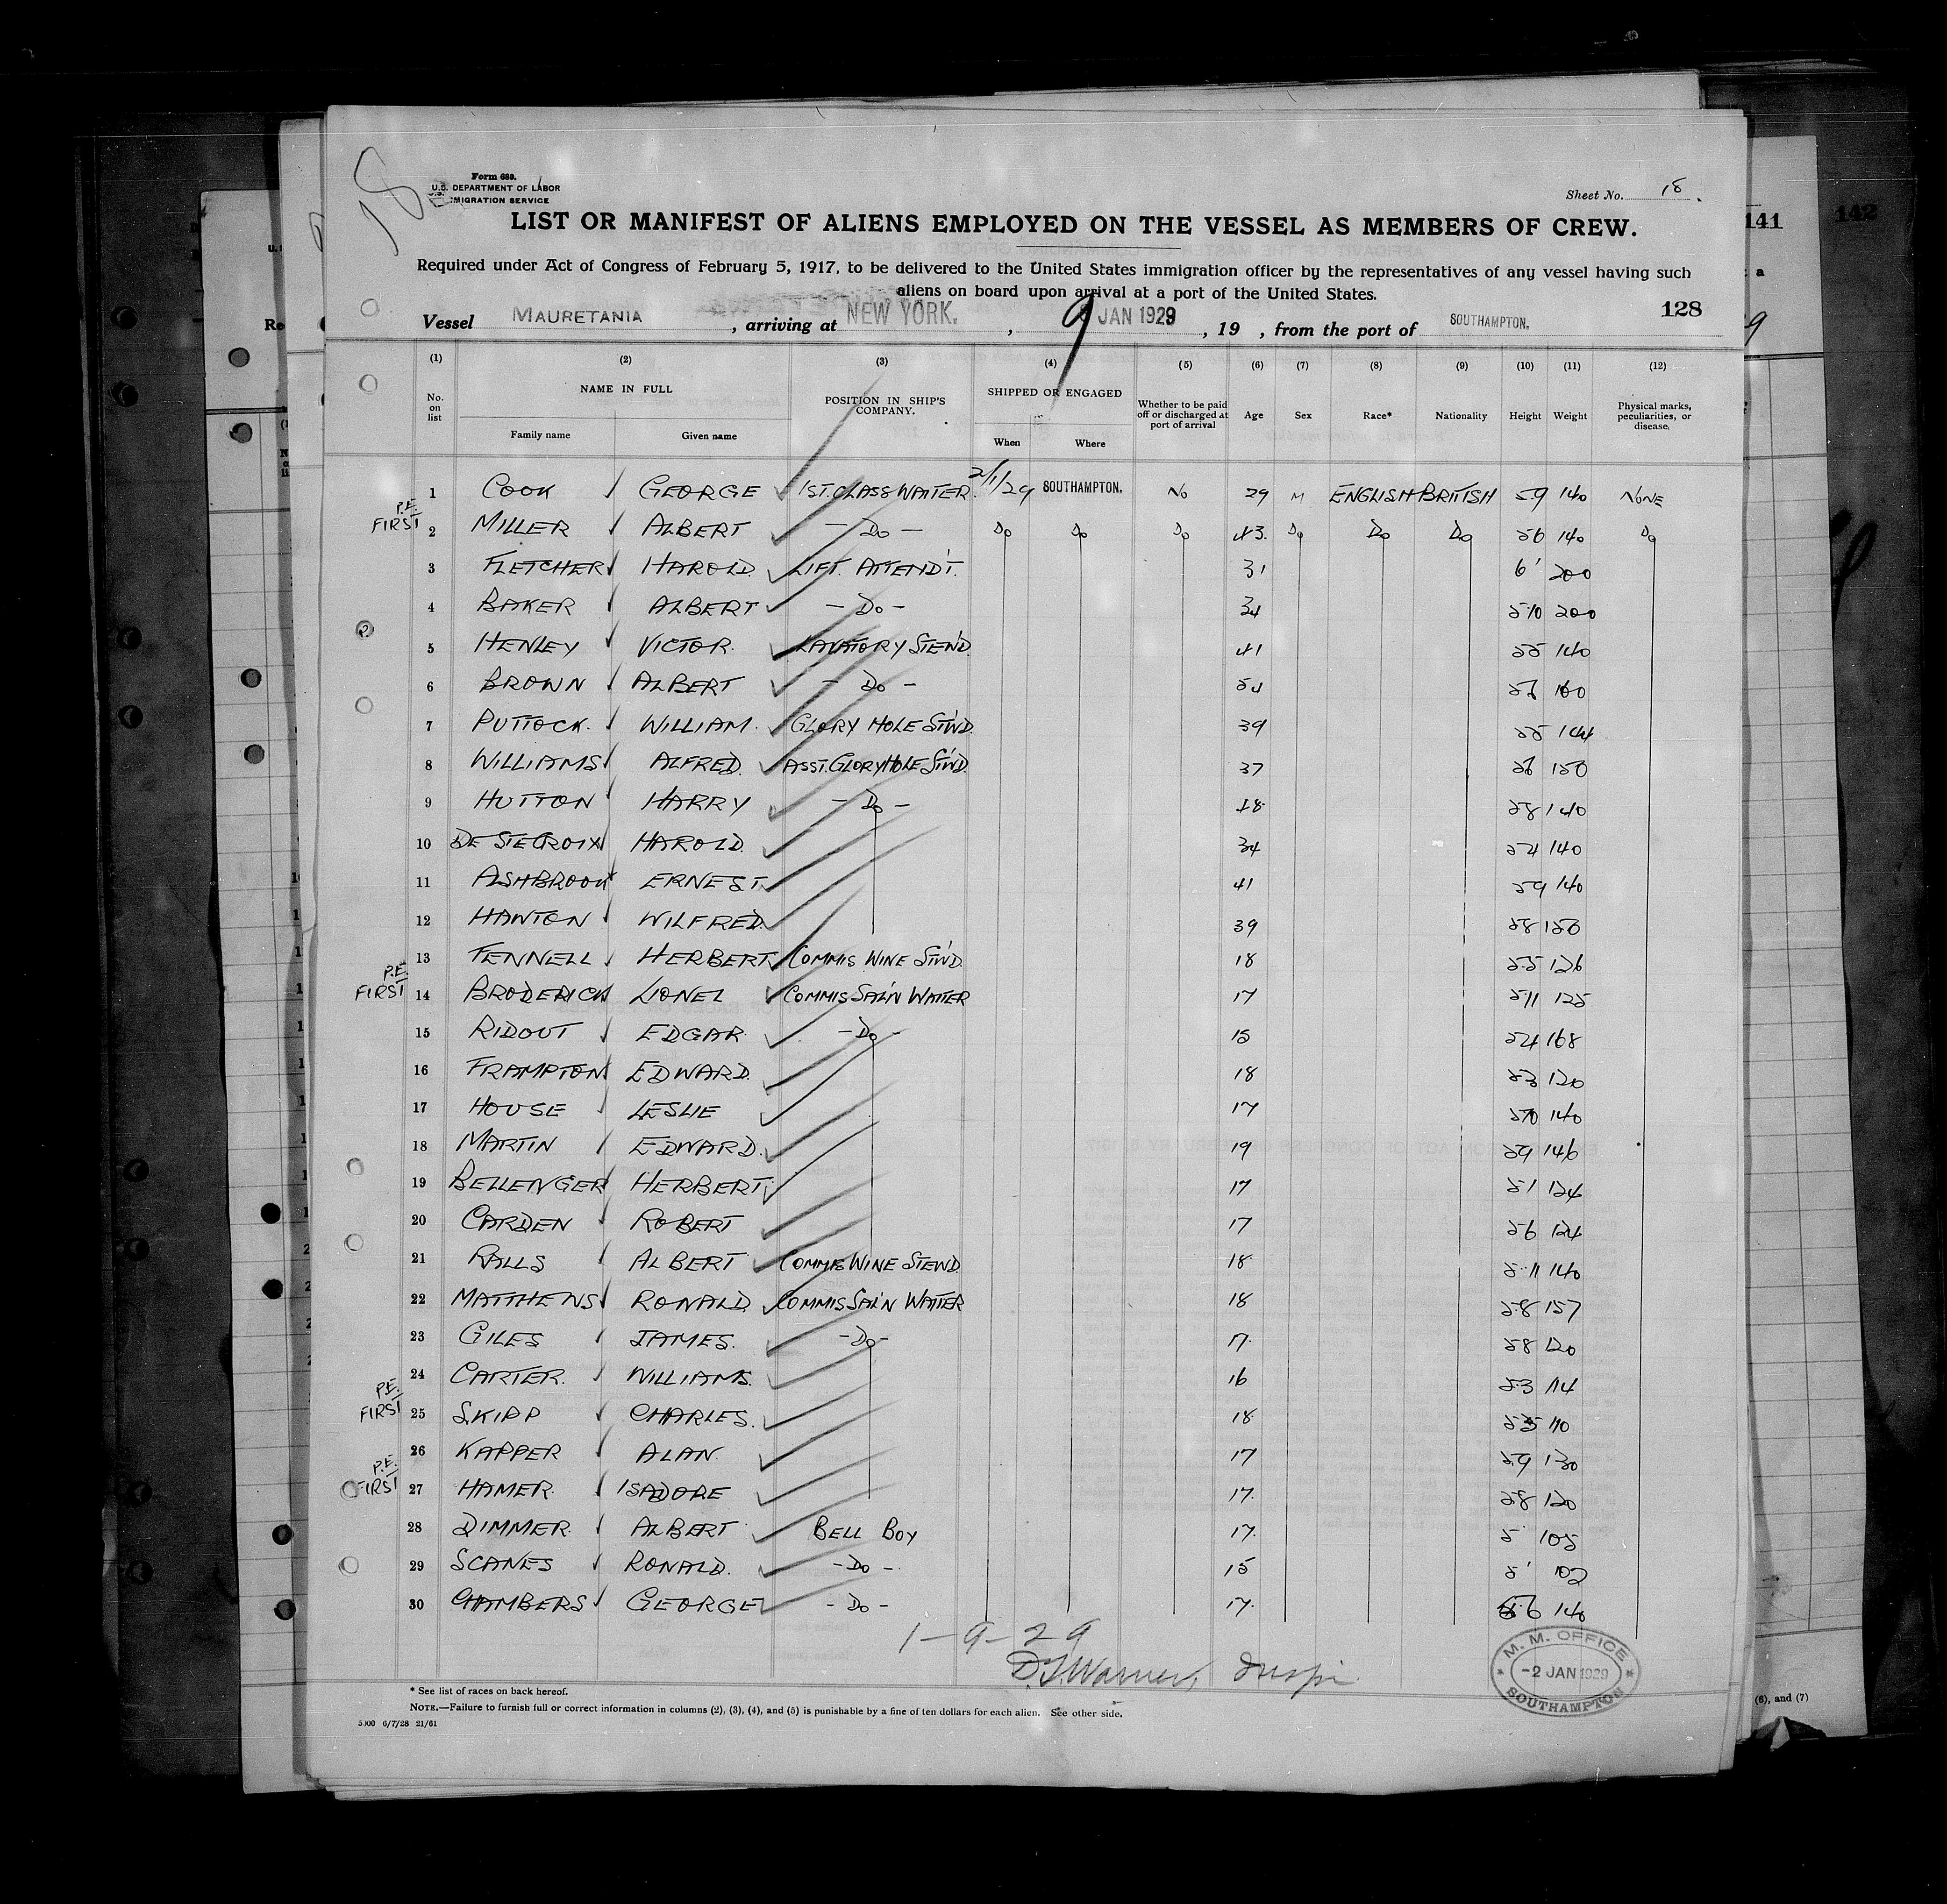 18
Form 680.
U.S. DEPARTMENT OF LABOR
IMMIGRATION SERVICE
Sheet No. 18.
LIST OR MANIFEST OF ALIENS EMPLOYED ON THE VESSEL AS MEMBERS OF CREW.
141
142
Required under Act of Congress of February 5, 1917, to be delivered to the United States immigration officer by the representatives of any vessel having such
aliens on board upon arrival at a port of the United States.
128
Vessel MAURETANIA, arriving at NEW YORK., 9 JAN 1929, 19 , from the port of SOUTHAMPTON.
(1) (2) (3) (4) (5) (6) (7) (8) (9) (10) (11) (12)
No. on list NAME IN FULL POSITION IN SHIP'S COMPANY. SHIPPED OR ENGAGED Whether to be paid off or discharged at port of arrival Age Sex Race* Nationality Height Weight Physical marks, peculiarities, or disease.
Family name Given name When Where
1 COOK GEORGE 1ST. CLASS WAITER. 2/1/29 SOUTHAMPTON. No 29 M ENGLISH BRITISH 5.9 140 NONE
P.E. FIRST 2 MILLER ALBERT - Do - Do Do Do 43. Do Do Do 56 140 Do
3 FLETCHER HAROLD. LIFT. ATTEND'T. 31 6' 200
4 BAKER ALBERT - Do - 34 5.10 200
5 HENLEY VICTOR. LAVATORY STE'ND. 41 55 140
6 BROWN ALBERT - Do - 54 160
7 PUTTOCK. WILLIAM. GLORY HOLE ST'W'D. 39 55 144
8 WILLIAMS ALFRED. ASST. GLORY HOLE ST'W'D. 37 56 150
9 HUTTON HARRY - Do - 58 140
10 DE STE CROIX HAROLD. 34 54 140
11 ASHBROOK ERNEST. 41 59 140
12 HAWTON WILFRED. 39 58 150
13 FENNELL HERBERT. COMMIS WINE ST'W'D. 18 5.5 126
P.E. FIRST 14 BRODERICK LIONEL COMMIS SAL'N WAITER 17 511 125
15 RIDOUT EDGAR. - Do - 15 54 168
16 FRAMPTON EDWARD. 18 53 120
17 HOUSE LESLIE 17 140
18 MARTIN EDWARD. 19 59 146
19 BELLENGER HERBERT. 17 51 124
20 CARDEN ROBERT 17 56 124
21 RALLS ALBERT COMMIS WINE STEWD. 18 5.11 140
22 MATTHEWS RONALD. COMMIS SAL'N WAITER 18 5.8 157
23 GILES JAMES. - Do - 17. 58 120
24 CARTER. WILLIAMS. 16 5.3 114
P.E. FIRST 25 SKIPP CHARLES. 18 110
26 KAPPER ALAN. 17 5.9 130
P.E. FIRST 27 HAMER. ISADORE 17. 5.8 120
28 DIMMER. ALBERT BELL BOY 17. 5' 105
29 SCANES RONALD. - Do - 15 5' 102
30 CHAMBERS GEORGE - Do - 17. 5.6 140
1-9-29
D.J. Warner, Inspr.
M. M. OFFICE
-2 JAN 1929
SOUTHAMPTON
* See list of races on back hereof.
NOTE.—Failure to furnish full or correct information in columns (2), (3), (4), and (5) is punishable by a fine of ten dollars for each alien. See other side.
5000 6/7/28 21/61
(6), and (7)